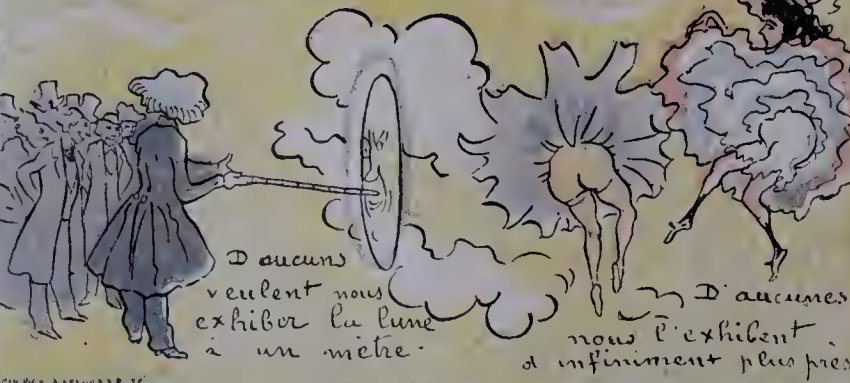 D'aucuns
veulent nous
exhiber la lune
à un mètre.
D'aucunes
nous l'exhibent
d'infiniment plus près